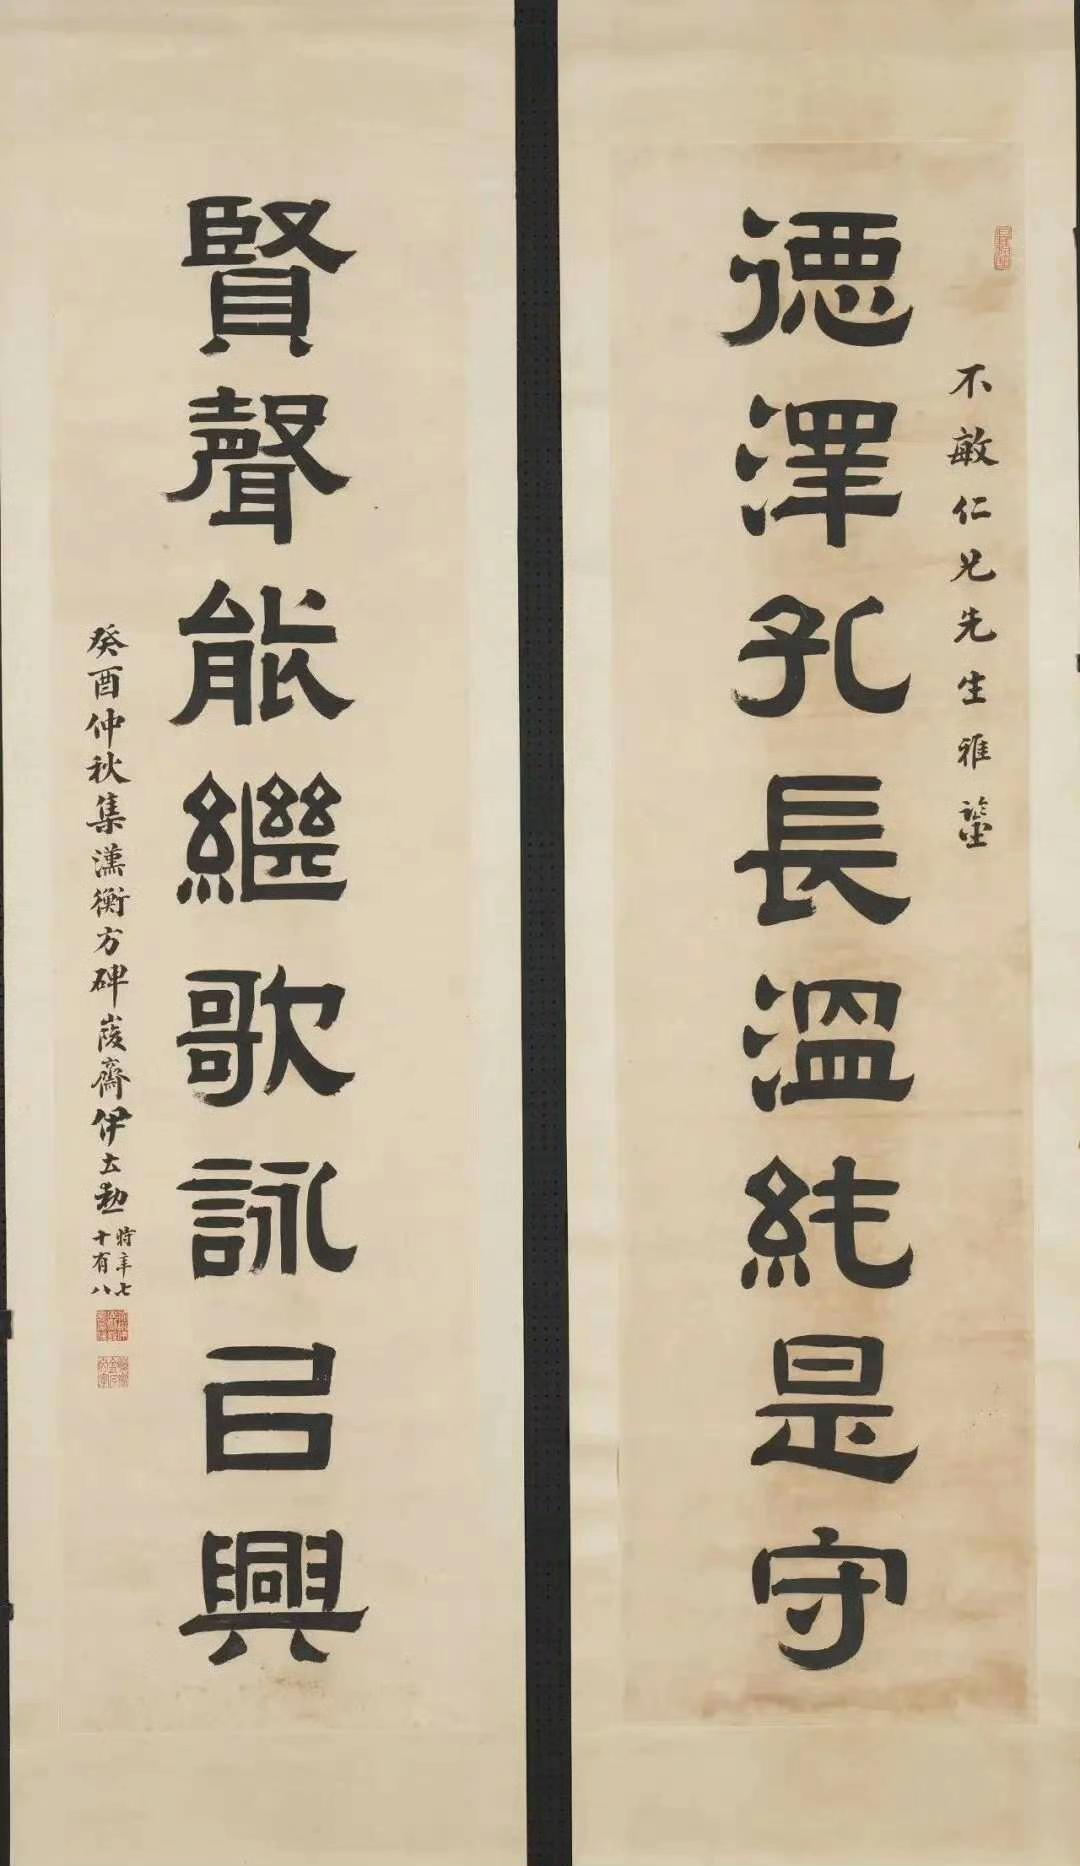 德澤孔長溫純是守
不敏仁兄先生雅鑒
賢聲能繼歌詠㠯興
癸酉仲秋集漢衡方碑峻齋伊立勳
時年七
十有八